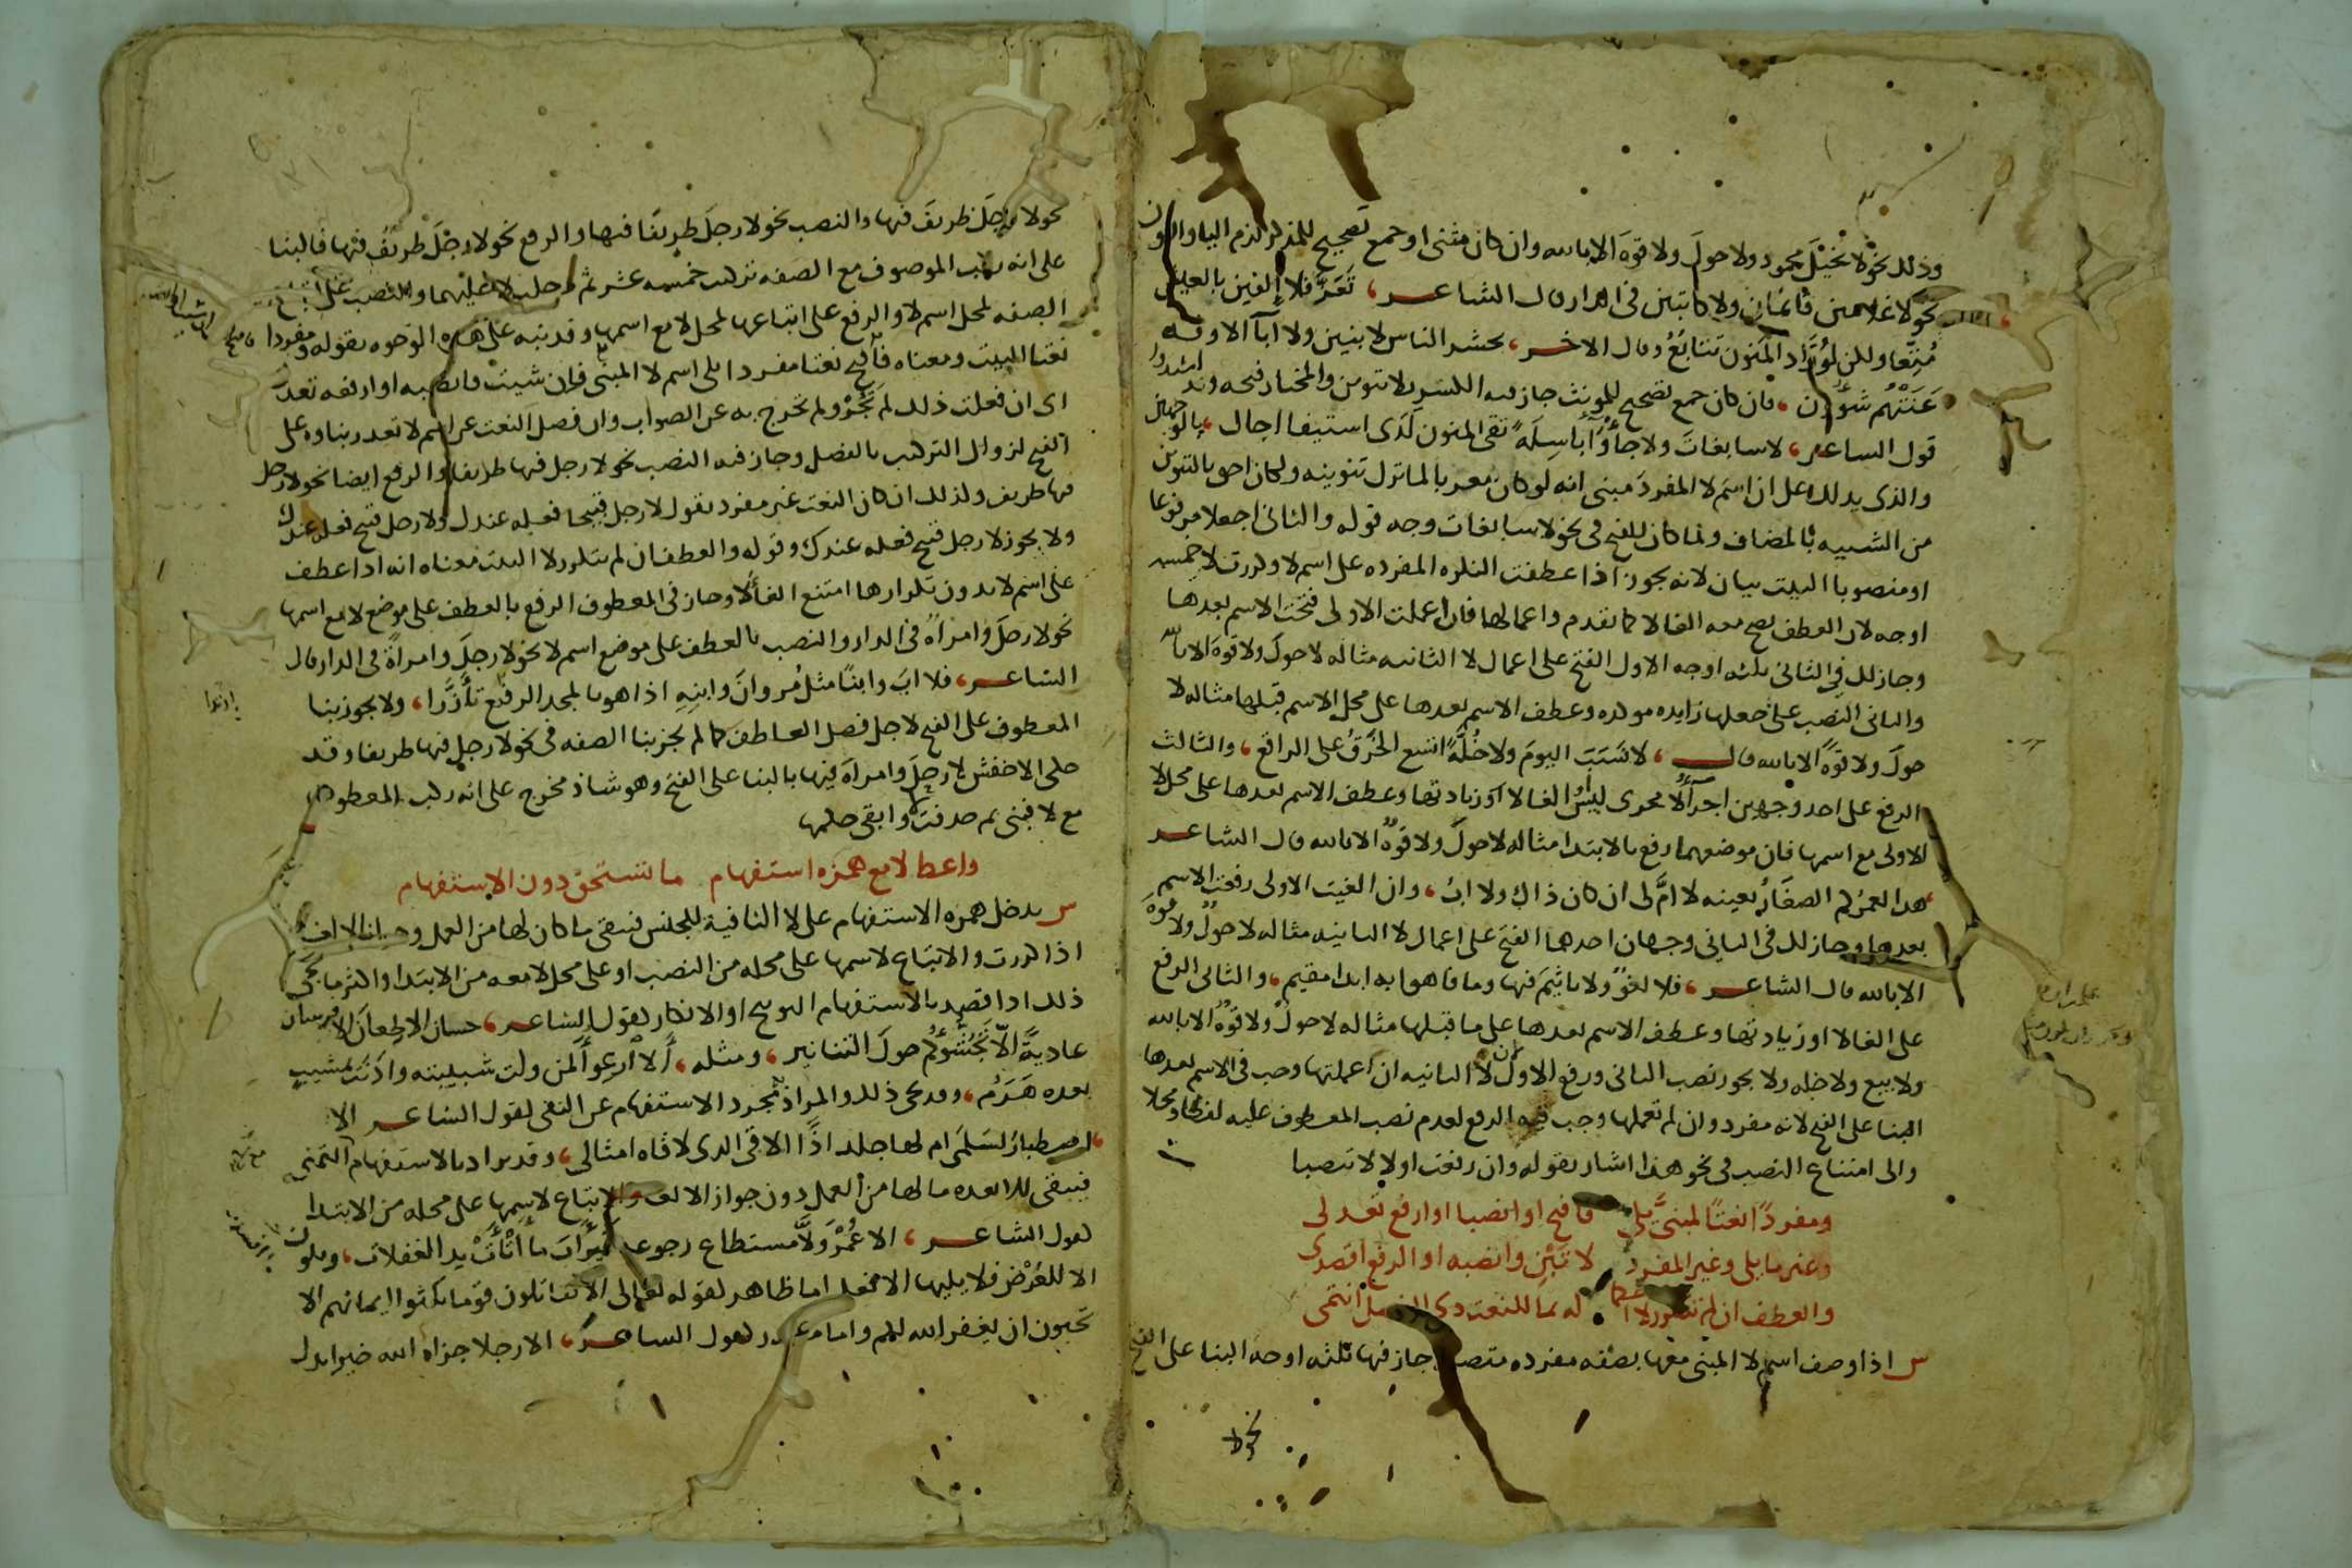 وذلك نحو لا بخيل محمود ولا حول ولا قوة الا بالله وان كان مثنى او جمع تصحيح للمذكر لزم اليا والنون
نحو لا غلامين قائمان ولا كاتبين في الدار قال الشاعر، تعز فلا إلفين بالعيش
متعا ولكن لوراد المنون تتابع وقال الاخر، يحشر الناس لا بنين ولا آبآ الا وقد
عنتهم شؤون، فان كان جمع تصحيح للمونث جاز فيه الكسر بلا تنوين والمختار فتحه وقد انشدوا
قول الساعر، لا سابغات ولا جأوآ باسلة تقي المنون لدى استيفا اجال، بالوجهين
والذي يدلك على ان اسم لا المفرد مبني انه لو كان معربا لما ترك تنوينه ولكان احق بالتنوين
من الشبيه بالمضاف ولما كان للفتح في نحو لا سابغات وجه قوله والثاني اجعلا مرفوعا
او منصوبا البيت بيان لانه يجوز اذا عطفت النكره المفرده على اسم لا وكررت لا خمسه
اوجه لان العطف يصح معه الغا لا كما تقدم واعمالها فان اعملت الاولى فتحت الاسم بعدها
وجاز لك في الثاني ثلثه اوجه الاول الفتح على اعمال لا الثانيه مثاله لا حول ولا قوة الا بالله
والثاني النصب على جعلها زايده موكده وعطف الاسم بعدها على محل الاسم قبلها مثاله لا
حول ولا قوة الا بالله قال، لا نسب اليوم ولا خلة اتسع الخرق على الراقع، والثالث
الرفع على احد وجهين اجرآ لا مجرى ليس او الغا لا او زيادتها وعطف الاسم بعدها على محل لا
الاولى مع اسمها فان موضعهما رفع بالابتدا مثاله لا حول ولا قوة الا بالله قال الشاعر
هذا لعمركم الصغار بعينه لا ام لي ان كان ذاك ولا اب، وان الغيت الاولى رفعت الاسم
بعدها وجاز لك في الثاني وجهان احدهما الفتح على اعمال لا الثانيه مثاله لا حول ولا قوة
الا بالله قال الشاعر، فلا لغو ولا تاثيم فيها وما فاهوا به ابدا مقيم، والثاني الرفع
على الغا لا او زيادتها وعطف الاسم بعدها على ما قبلها مثاله لا حول ولا قوة الا بالله
ولا بيع ولا خله ولا يجوز نصب الثاني ورفع الاول لان لا الثانيه ان اعملتها وجب في الاسم بعدها
البنا على الفتح لانه مفرد وان لم تعملها وجب فيه الرفع لعدم نصب المعطوف عليه لفظا ومحلا
والى امتناع النصب في نحو هذا اشار بقوله وان رفعت اولا لا تنصبا
ومفردا نعتا لمبني يلي فافتح او انصبا او ارفع تعدل
وغير ما يلي وغير المفرد لا تبن وانصبه او الرفع اقصد
والعطف ان لم تتكرر لا احكما له بما للنعت ذي الفصل انتمى
س اذا وصف اسم لا المبني معها بصفه مفرده متصله جاز فيها ثلثه اوجه البنا على الفتح
نحو لا
نحو لا رجل ظريف فيها والنصب نحو لا رجل ظريفا فيها والرفع نحو لا رجل ظريف فيها فالبنا
على انه ركب الموصوف مع الصفه تركيب خمسه عشر ثم دخلت لا عليهما والنصب على اتباع
الصفه لمحل اسم لا والرفع على اتباعها لمحل لا مع اسمها وقد نبه على هذه الوجوه بقوله ومفردا
نعتا البيت ومعناه فافتح نعتا مفردا يلي اسم لا المبني فان شيت فانصبه او ارفعه تعدل
اي ان فعلت ذلك لم تجر ولم تخرج به عن الصواب وان فصل النعت عن اسم لا تعذر بناوه على
الفتح لزوال التركيب بالفصل وجاز فيه النصب نحو لا رجل فيها ظريفا والرفع ايضا نحو لا رجل
فيها ظريف ولذلك ان كان النعت غير مفرد تقول لا رجل قبيحا فعله عندك ولا رجل قبيح فعله عندك
ولا يجوز لا رجل قبيح فعله عندك وقوله والعطف ان لم تتكرر لا البيت معناه انه اذا عطف
على اسم لا بدون تكرارها امتنع الغا لا وجاز في المعطوف الرفع بالعطف على موضع لا مع اسمها
نحو لا رجل وامراة في الدار والنصب بالعطف على موضع اسم لا نحو لا رجل وامراة في الدار قال
الشاعر، فلا اب وابنا مثل مروان وابنه اذا هو بالمجد ارتدى وتأزرا، ولا يجوز بنا
المعطوف على الفتح لاجل فصل العاطف كما لم يجز بنا الصفه في نحو لا رجل فيها ظريفا وقد
حكى الاخفش لا رجل وامراة فيها بالبنا على الفتح وهو شاذ مخرج على انه ركب المعطوف
مع لا فبني ثم حذفت وابقى حكمها
واعط لا مع همزه استفهام ما تستحق دون الاستفهام
س يدخل همزه الاستفهام على لا النافية للجنس فيبقى ما كان لها من العمل وجواز الالغا
اذا كررت والاتباع لاسمها على محله من النصب او على محل لا معه من الابتدا واكثر ما يجي
ذلك اذا قصد بالاستفهام التوبيخ او الانكار كقول الشاعر، حسان الا طعان الا فرسان
عادية الا تجشؤكم حول التنانير، ومثله، ألا ارعوآ لمن ولت شبيبته واذنت بمشيب
بعده هرم، وقد يجي ذلك والمراد مجرد الاستفهام عن النفي كقول الشاعر الا
اصطبار لسلمى ام لها جلد اذا الاقي الذي لاقاه امثالي، وقد يراد بالاستفهام التمني
فيبقى للا بعده ما لها من العمل دون جواز الالغا والاتباع لاسمها على محله من الابتدا
كقول الشاعر، الا عمر ولى مستطاع رجوعه فيرأب ما أثأت يد الغفلات، وتكون
الا للعرض فلا يليها الا فعل اما ظاهر كقوله تعالى الا تقاتلون قوما نكثوا ايمانهم الا
تحبون ان يغفر الله لكم واما مقدر كقول الساعر، الا رجلا جزاه الله خيرا يدل